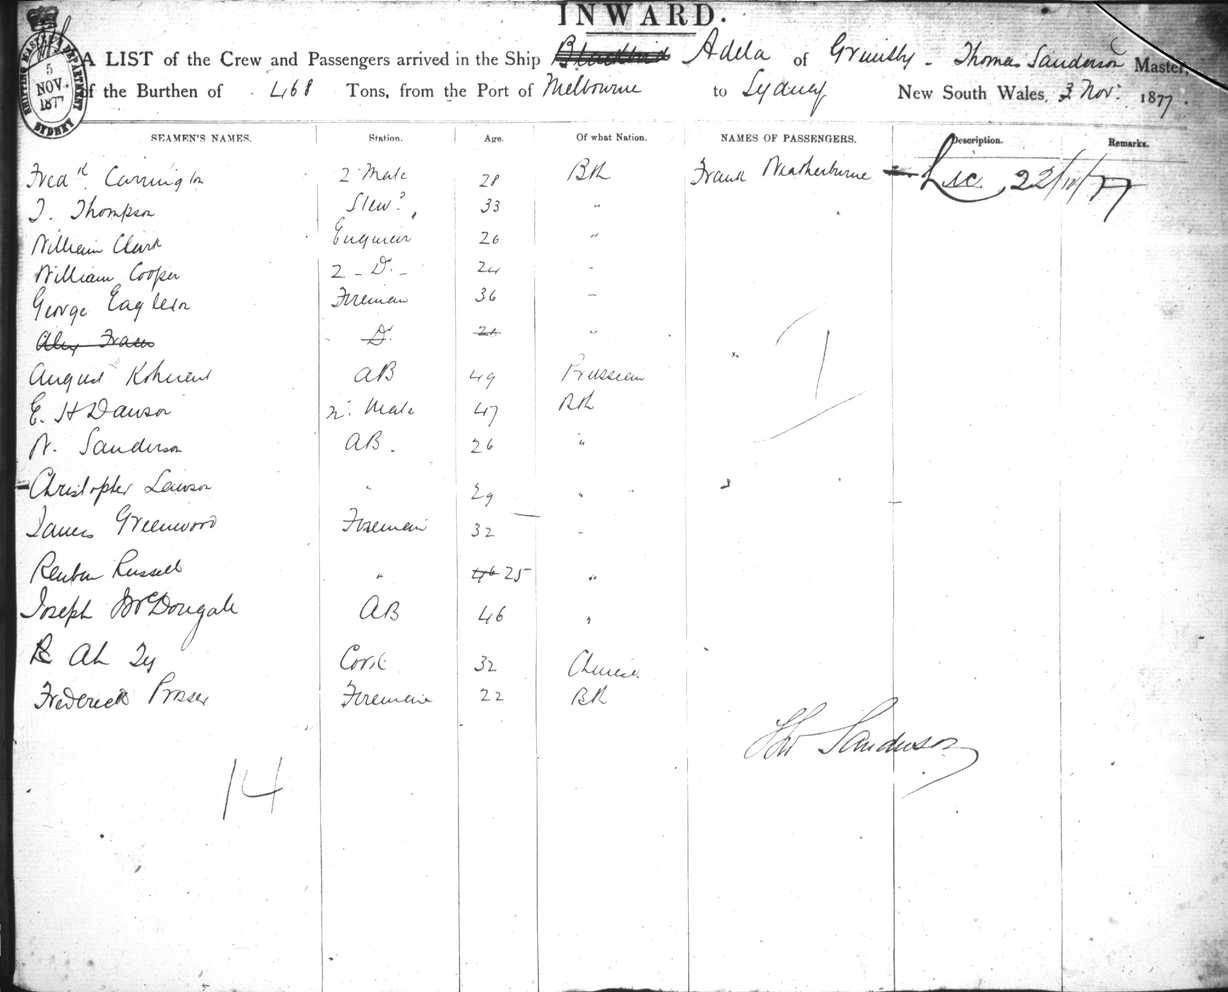 INWARD.
A LIST of the Crew and Passengers arrived in the Ship Adela of Grimsby - Thomas Sanderson Master,
of the Burthen of 468 Tons, from the Port of Melbourne to Sydney New South Wales, 3 Nov: 1877.
SHIPPING MASTER'S DEPARTMENT 5 NOV. 1877 SYDNEY
SEAMEN'S NAMES. Station. Age. Of what Nation. NAMES OF PASSENGERS. Description. Remarks.
Fredk. Carrington 2 Mate 28 Brh Frank Weatherburne - Lic. 22/10/77
T. Thompson Stewd. 33 "
William Clark Engineer 26 "
William Cooper 2 - Do. - 24 -
George Eagleson Fireman 36 -
Alex Fraser Do. "
August Kohnert AB 49 Prussian 1
E. H Dawson Mate 47 Brh
W. Sanderson AB. 26 "
Christopher Lawson " 29 "
James Greenwood Fireman 32 -
Reuben Russell " 46 25 "
Joseph McDougall AB 46 "
Ah Cook 32 Chinese
Frederick Prosser Fireman 22 Brh
Tho Sanderson
14